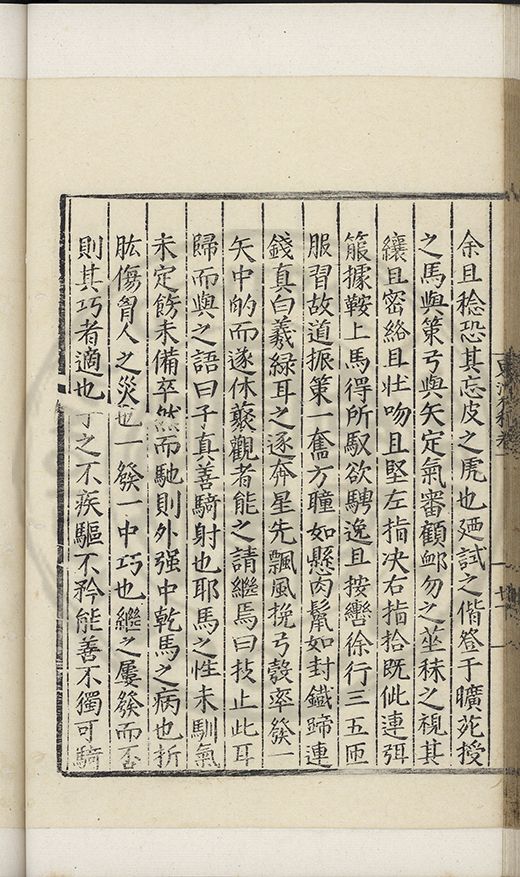 余且稔恐其忘皮之虎也廼試之偕登于曠苑授
之馬與策弓與矢定氣審顧卹勿之莝秣之視其
纕且密絡且壮吻且堅左指决右指拾既佌連弭
箙據鞍上馬得所馭欲騁逸且按轡徐行三五匝
服習故道振策一奮方瞳如懸肉鬉如封鐡蹄連
錢真白羲緑耳之逐奔星先飄風挽弓彀率發一
矢中的而遂休藝觀者能之請繼焉曰技止此耳
歸而與之語曰子真善騎射也耶馬之性未馴氣
未定飭未備卒然而馳則外强中乾馬之病也折
肱傷胷人之災也一發一中巧也繼之屢發而否
則其巧者適也子之不疾驅不矜能善不獨可騎